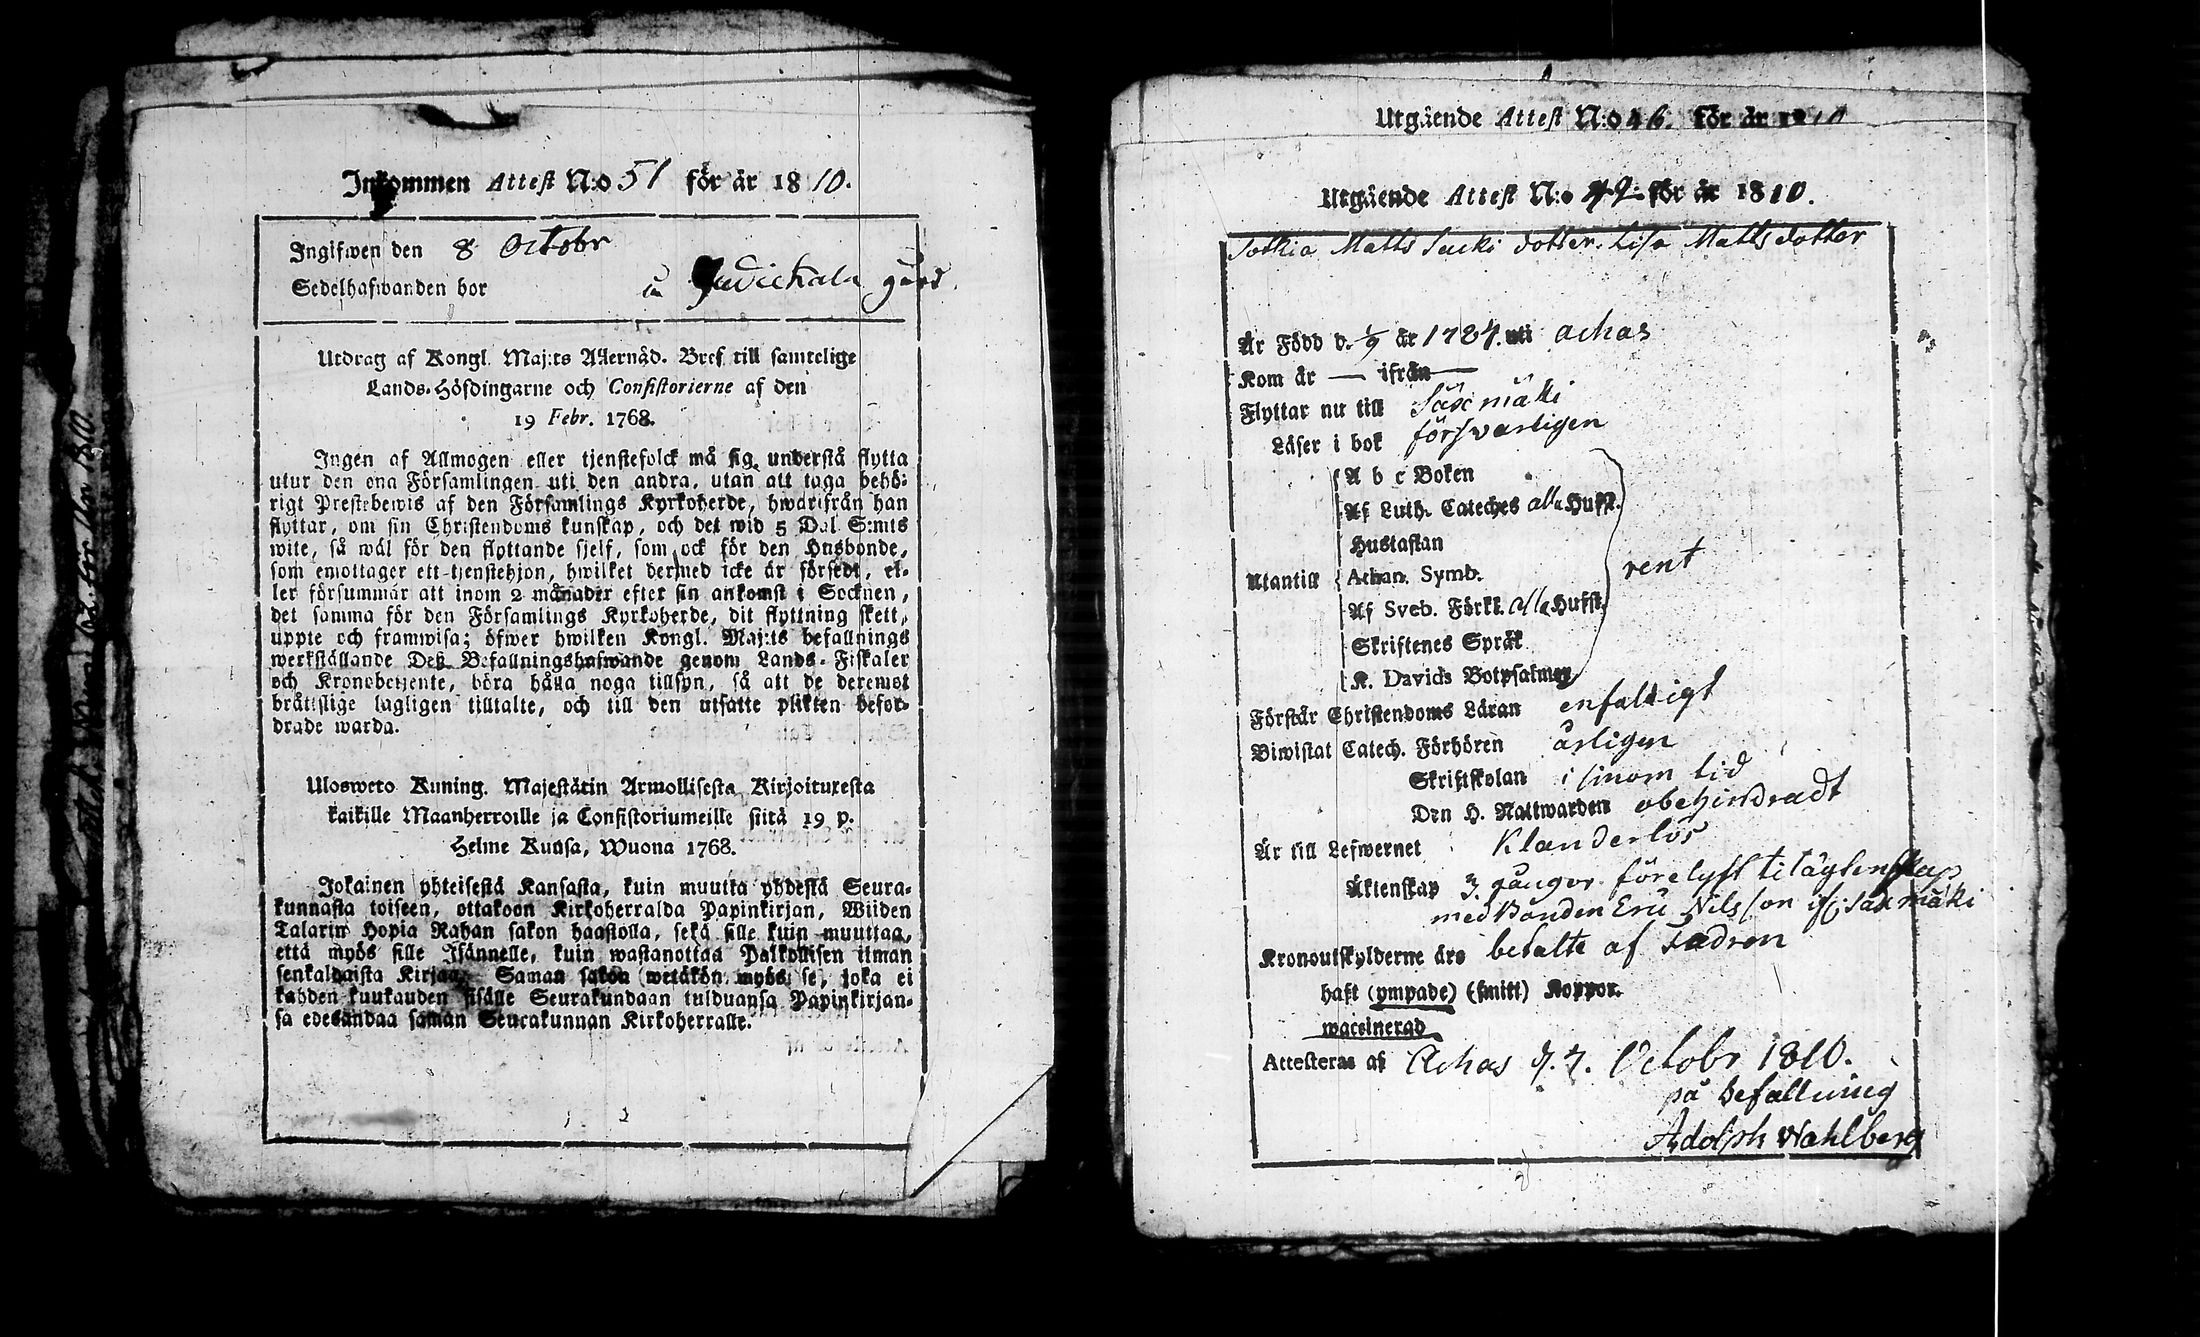 Inkommen Attest N:o 51 för år 1810.
Ingifwen den 8 Octobr
Sedelhafwanden bor gård.
Utdrag af Kongl. Maj:ts Allernåd. Bref till samtelige
Lands-Höfdingarne och Consistorierne af den
19 Febr. 1768.
Ingen af Allmogen eller tjenstefolck må sig understå flytta
utur den ena Församlingen uti den andra, utan att taga behö-
rigt Prestebewis af den Församlings Kyrkoherde, hwarifrån han
flyttar, om sin Christendoms kunskap, och det wid 5 Dal. S:mts
wite, så wäl för den flyttande sjelf, som ock för den Husbonde,
som emottager ett tjenstehjon, hwilket dermed icke är försedt, el-
ler försummar att inom 2 månader efter sin ankomst i Socknen,
det samma för den Församlings Kyrkoherde, dit flyttning skett,
uppte och framwisa; öfwer hwilken Kongl. Maj:ts befallnings
werkställande Deß Befallningshafwande genom Lands-Fiskaler
och Kronobetjente, böra hålla noga tillsyn, så att de deremot
bråtslige lagligen tilltalte, och till den utsatte plikten befor-
drade warda.
Ulosweto Kuning. Majestätin Armollisesta Kirjoituxesta
kaikille Maanherroille ja Consistoriumeille siitä 19 p.
Helme Kuusa, Wuona 1768.
Jokainen yhteisestä Kansasta, kuin muutta yhdestä Seura-
kunnasta toiseen, ottakoon Kirkoherralda Papinkirjan, Wiiden
Talarin Hopia Rahan sakon haastolla, sekä sille kuin muuttaa,
että myös sille Isännelle, kuin wastanottaa Palkollisen ilman
senkaldaista Kirjaa. Saman sakon wetäkön myös se, joka ei
kahden kuukauden sisälle Seurakundaan tulduansa Papinkirjan-
sa edesandaa saman Seurakunnan Kirkoherralle.
Utgående Attest N:o 46. för år 1810
Utgående Attest N:o 49 för år 1810.
Matts dotter. Lisa Mattsdotter
Är Född d. år 1784. uti Achas
Kom år — ifrån —
Flyttar nu till Säxmäki
Läser i bok försvarligen
Utantill
A b c Boken
Af Luth. Cateches alla Hufst.
Hustaflan
Athan. Symb.
Af Sveb. Förkl. alla Hufst.
Skriftenes Språk
K. Davids Botpsalmer
rent
Förstår Christendoms Läran enfaldigt
Biwistat Catech. Förhören årligen
Skriftskolan i sinom tid
Den H. Nattwarden obehindradt
Är till Lefwernet Klanderlös
Äktenskap 3. gånger förelyst
med Bonden Eric Nilsson Saxmäki
Kronoutskylderne äro betalte af Fadren
haft (ympade) (smitt) Koppor.
waccinerad
Attesteras af Achas d. 7. Octobr 1810.
på befallning
Adolph Wahlberg